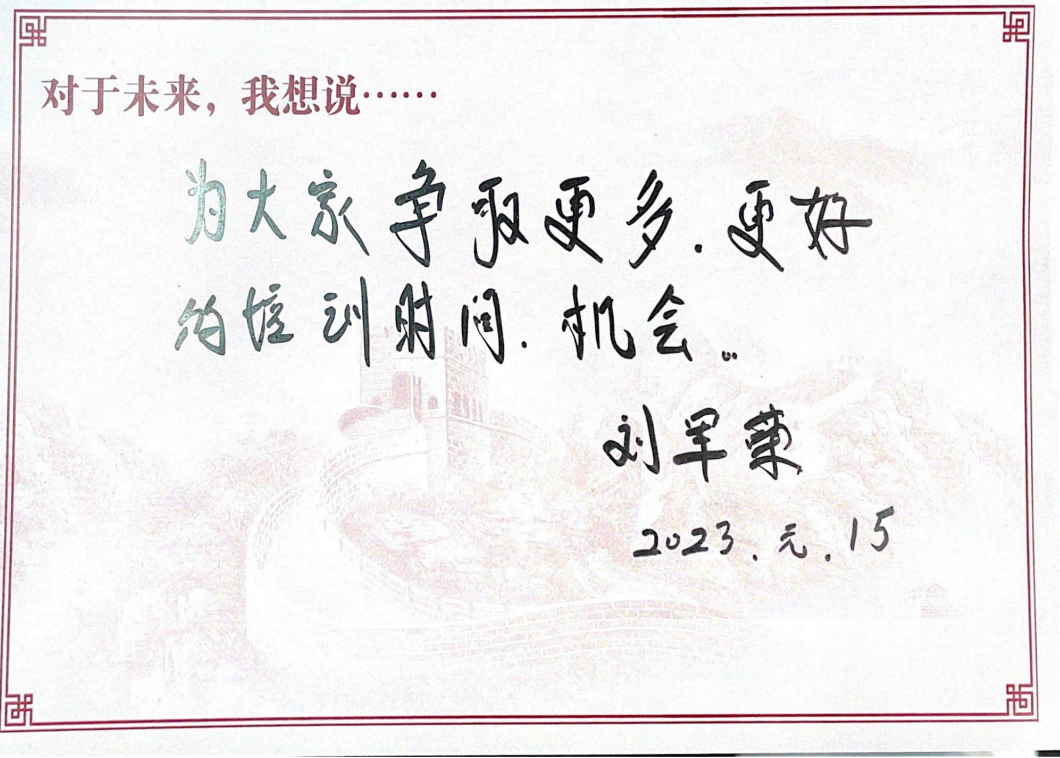 对于未来，我想说……
为大家争取更多.更好
的培训时间.机会。
刘早荣
2023.元.15